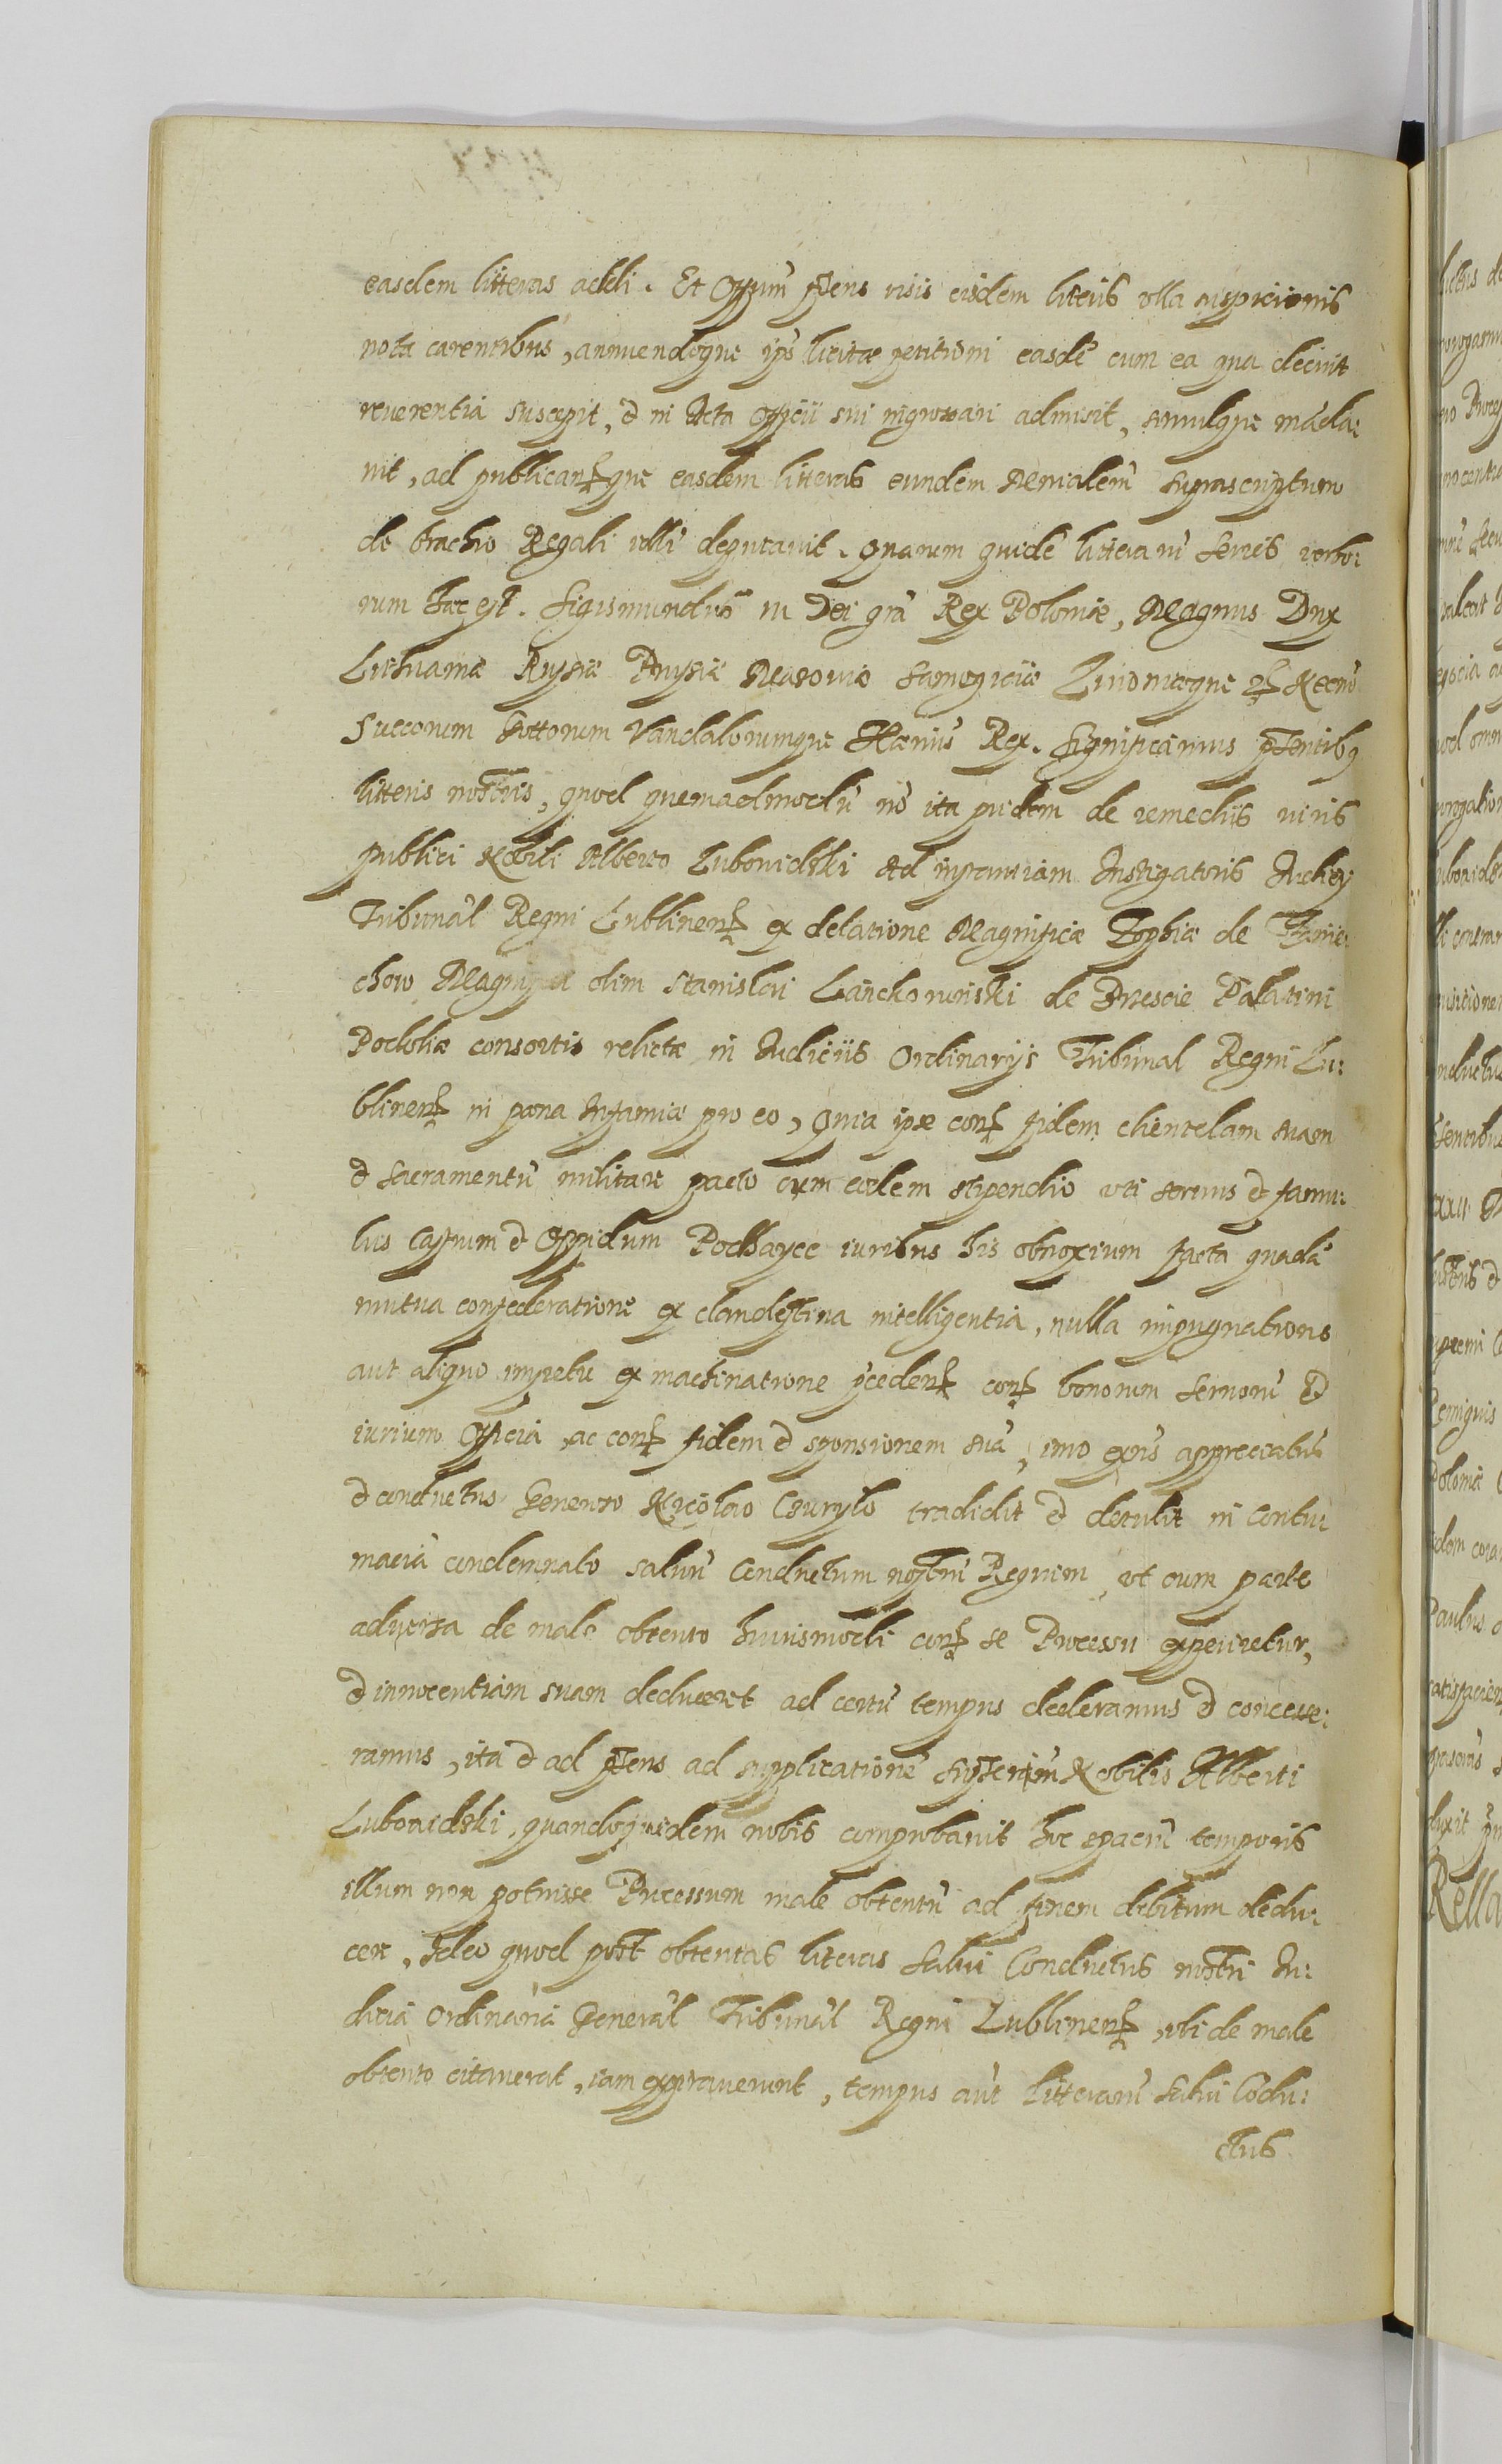 easdem litteras addi. Et Offum pñs visis eisdem literis ulla suspicionis
nota carentibus, annuendoque ips licitæ petitioni easdē cum ea qua decuit
reuerentia suscepit, & in Acta Officii sui ingrossari admisit, simulque māda:
uit, ad publicandque easdem litteras eundem Ministerialem suprascriptum
de brachio Regali illi deputauit. Quarum quidē litterarū series verbo:
rum hæc est. Sigismundus III Dei grā Rex Poloniæ, Magnus Dux
Lithuaniæ Russiæ Prussiæ Masouiæ Samogiciæ Liuoniæque & Necnō
Sueconum Gottorum Vandalorumque Hæriūs Rex. Significamus pñtibq
litteris nostris, quod quemadmodū nō ita pridem de remediis viris
publici Nobili Alberto Lubouidzki Ad instantiam Instigatoris Judicij
Tribunāl Regni Lublinen ex delatione Magnificæ Zophiæ de
chow Magnifici olim Stanislai Lanckorunski de Brzezie Palatini
Podoliæ consortis relictæ in Judiciis Ordinarijs Tribunal Regni Lu:
blinen in pæna Infamiæ pro eo, quia ipse con fidem clientelam suam
& sacramentū militare pacto cum eodem stipendio uti seruus & famu:
lus Castrum & Oppidum Podhayce iuribus his obnoxium facta quadā
mutua confederatione ex clandestina intelligentia, nulla impugnatione
aut aliquo impetu ex machinatione pcedent con bonorum seruorū &
iurium Officia, ac con fidem & sponsionem suā, imo exīs appreciatus
& conductus Generoso Nicolao Czurylo tradidit & detulit in contu:
maciā condemnato saluū Conductum nostrū Regium, ut cum parte
aduersa de male obtento huiusmodi con se Processu experiretur,
& innocentiam suam deduceret ad certū tempus dederamus & concesse:
ramus, ita & ad pñs ad supplicationē Nobilis Alberti
Lubouidzki, quandoquidem nobis comprobauit hoc spaciū temporis
illum non potuisse Processum male obtentū ad finem debitum dedu:
cere, Ideo quod post obtentas literas Salui Conductus nostri Iu:
dicia Ordinaria Generāl Tribunāl Regni Lublinen, ubi de male
obtento citauerat, iam expirauerunt, tempus aūt Litterarū Salui Cōdu:
ctus